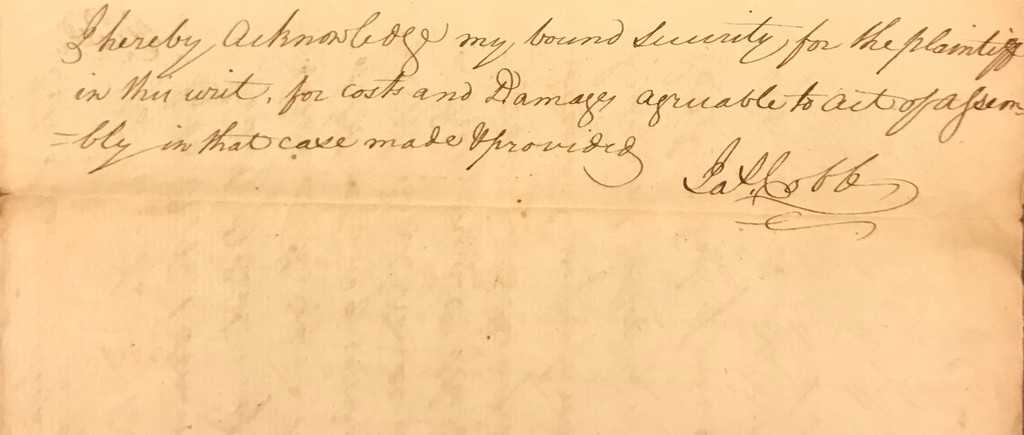 I hereby Acknowledge my bound Security for the plaintiff
in this writ. for costs and Damages agruable to act of assem
=bly in that case made & provided
Jas. Cobb